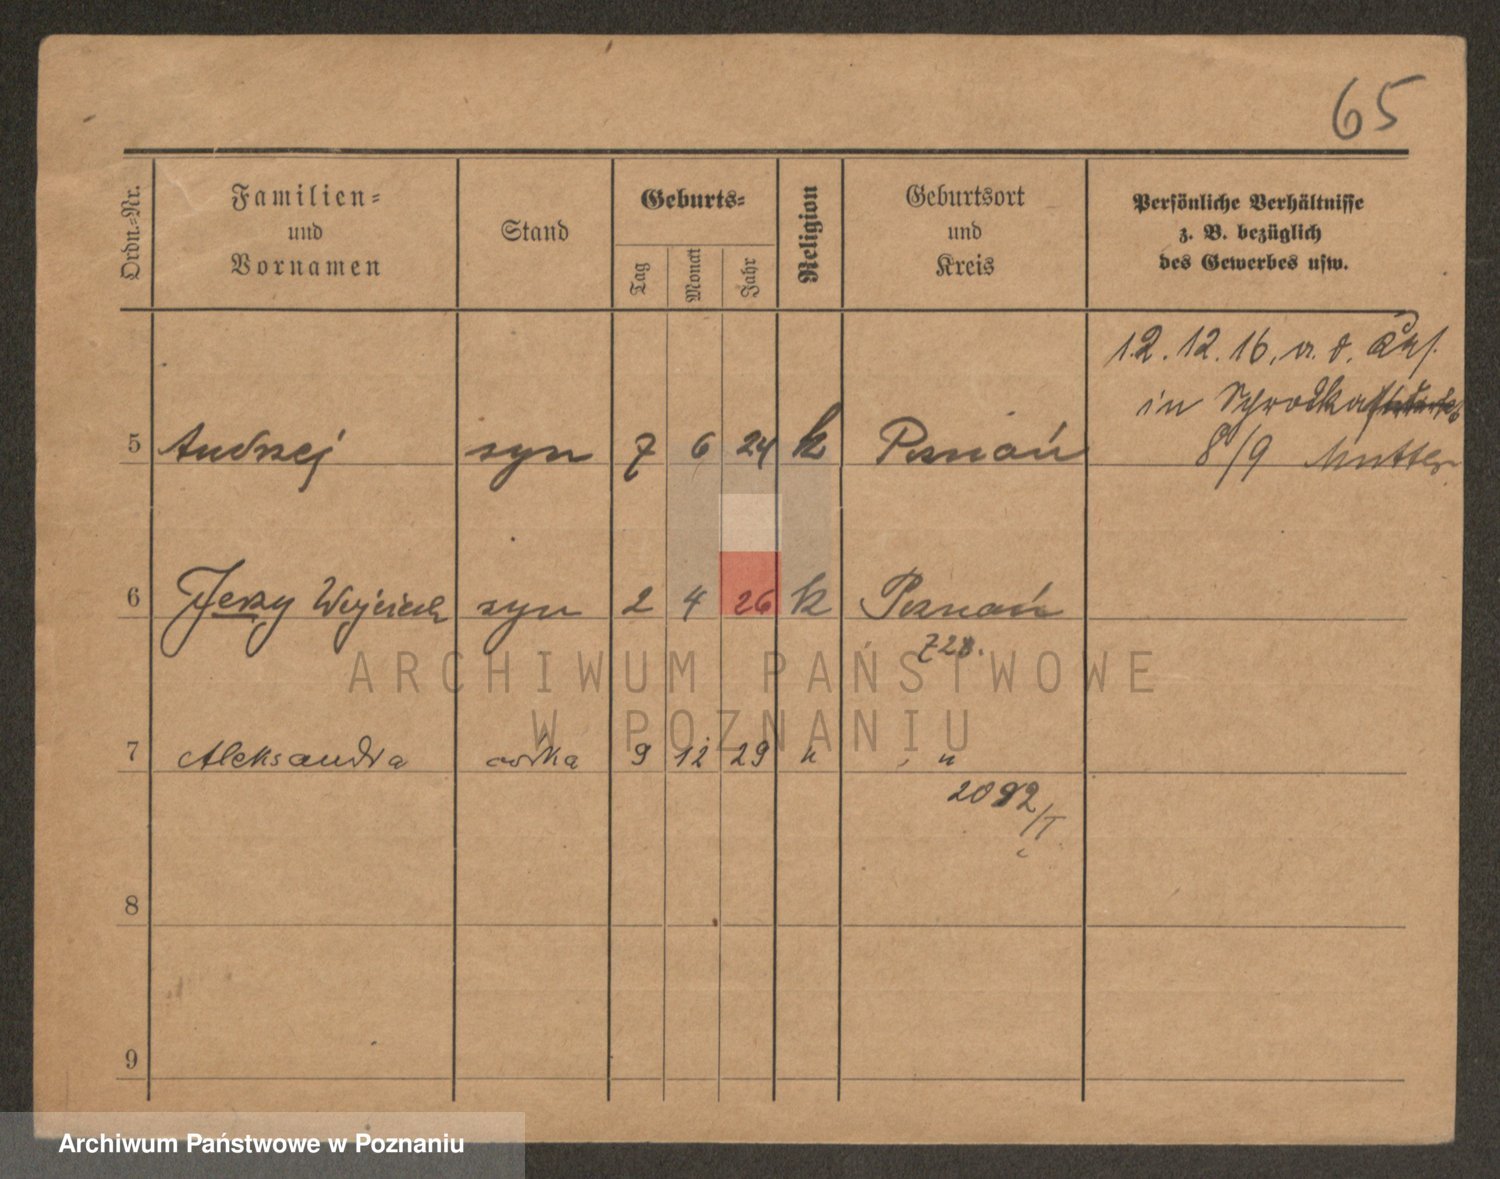 65
Ordn.-Nr.
Familien-
und
Vornamen
Stand
Geburts-
Tag
Monat
Jahr
Religion
Geburtsort
und
Kreis
Persönliche Verhältnisse
z. B. bezüglich
des Gewerbes usw.
12.12.16. v. d.
in Schrodka
5 Andrzej syn 7 6 24 k Poznań 8/9 Mutter
6 Jerzy Wojciech syn 2 4 26 k Poznań
728.
ARCHIWUM PAŃSTWOWE
W POZNANIU
7 Aleksandra córka 9 12 29 " "
2092/I
8
9
Archiwum Państwowe w Poznaniu